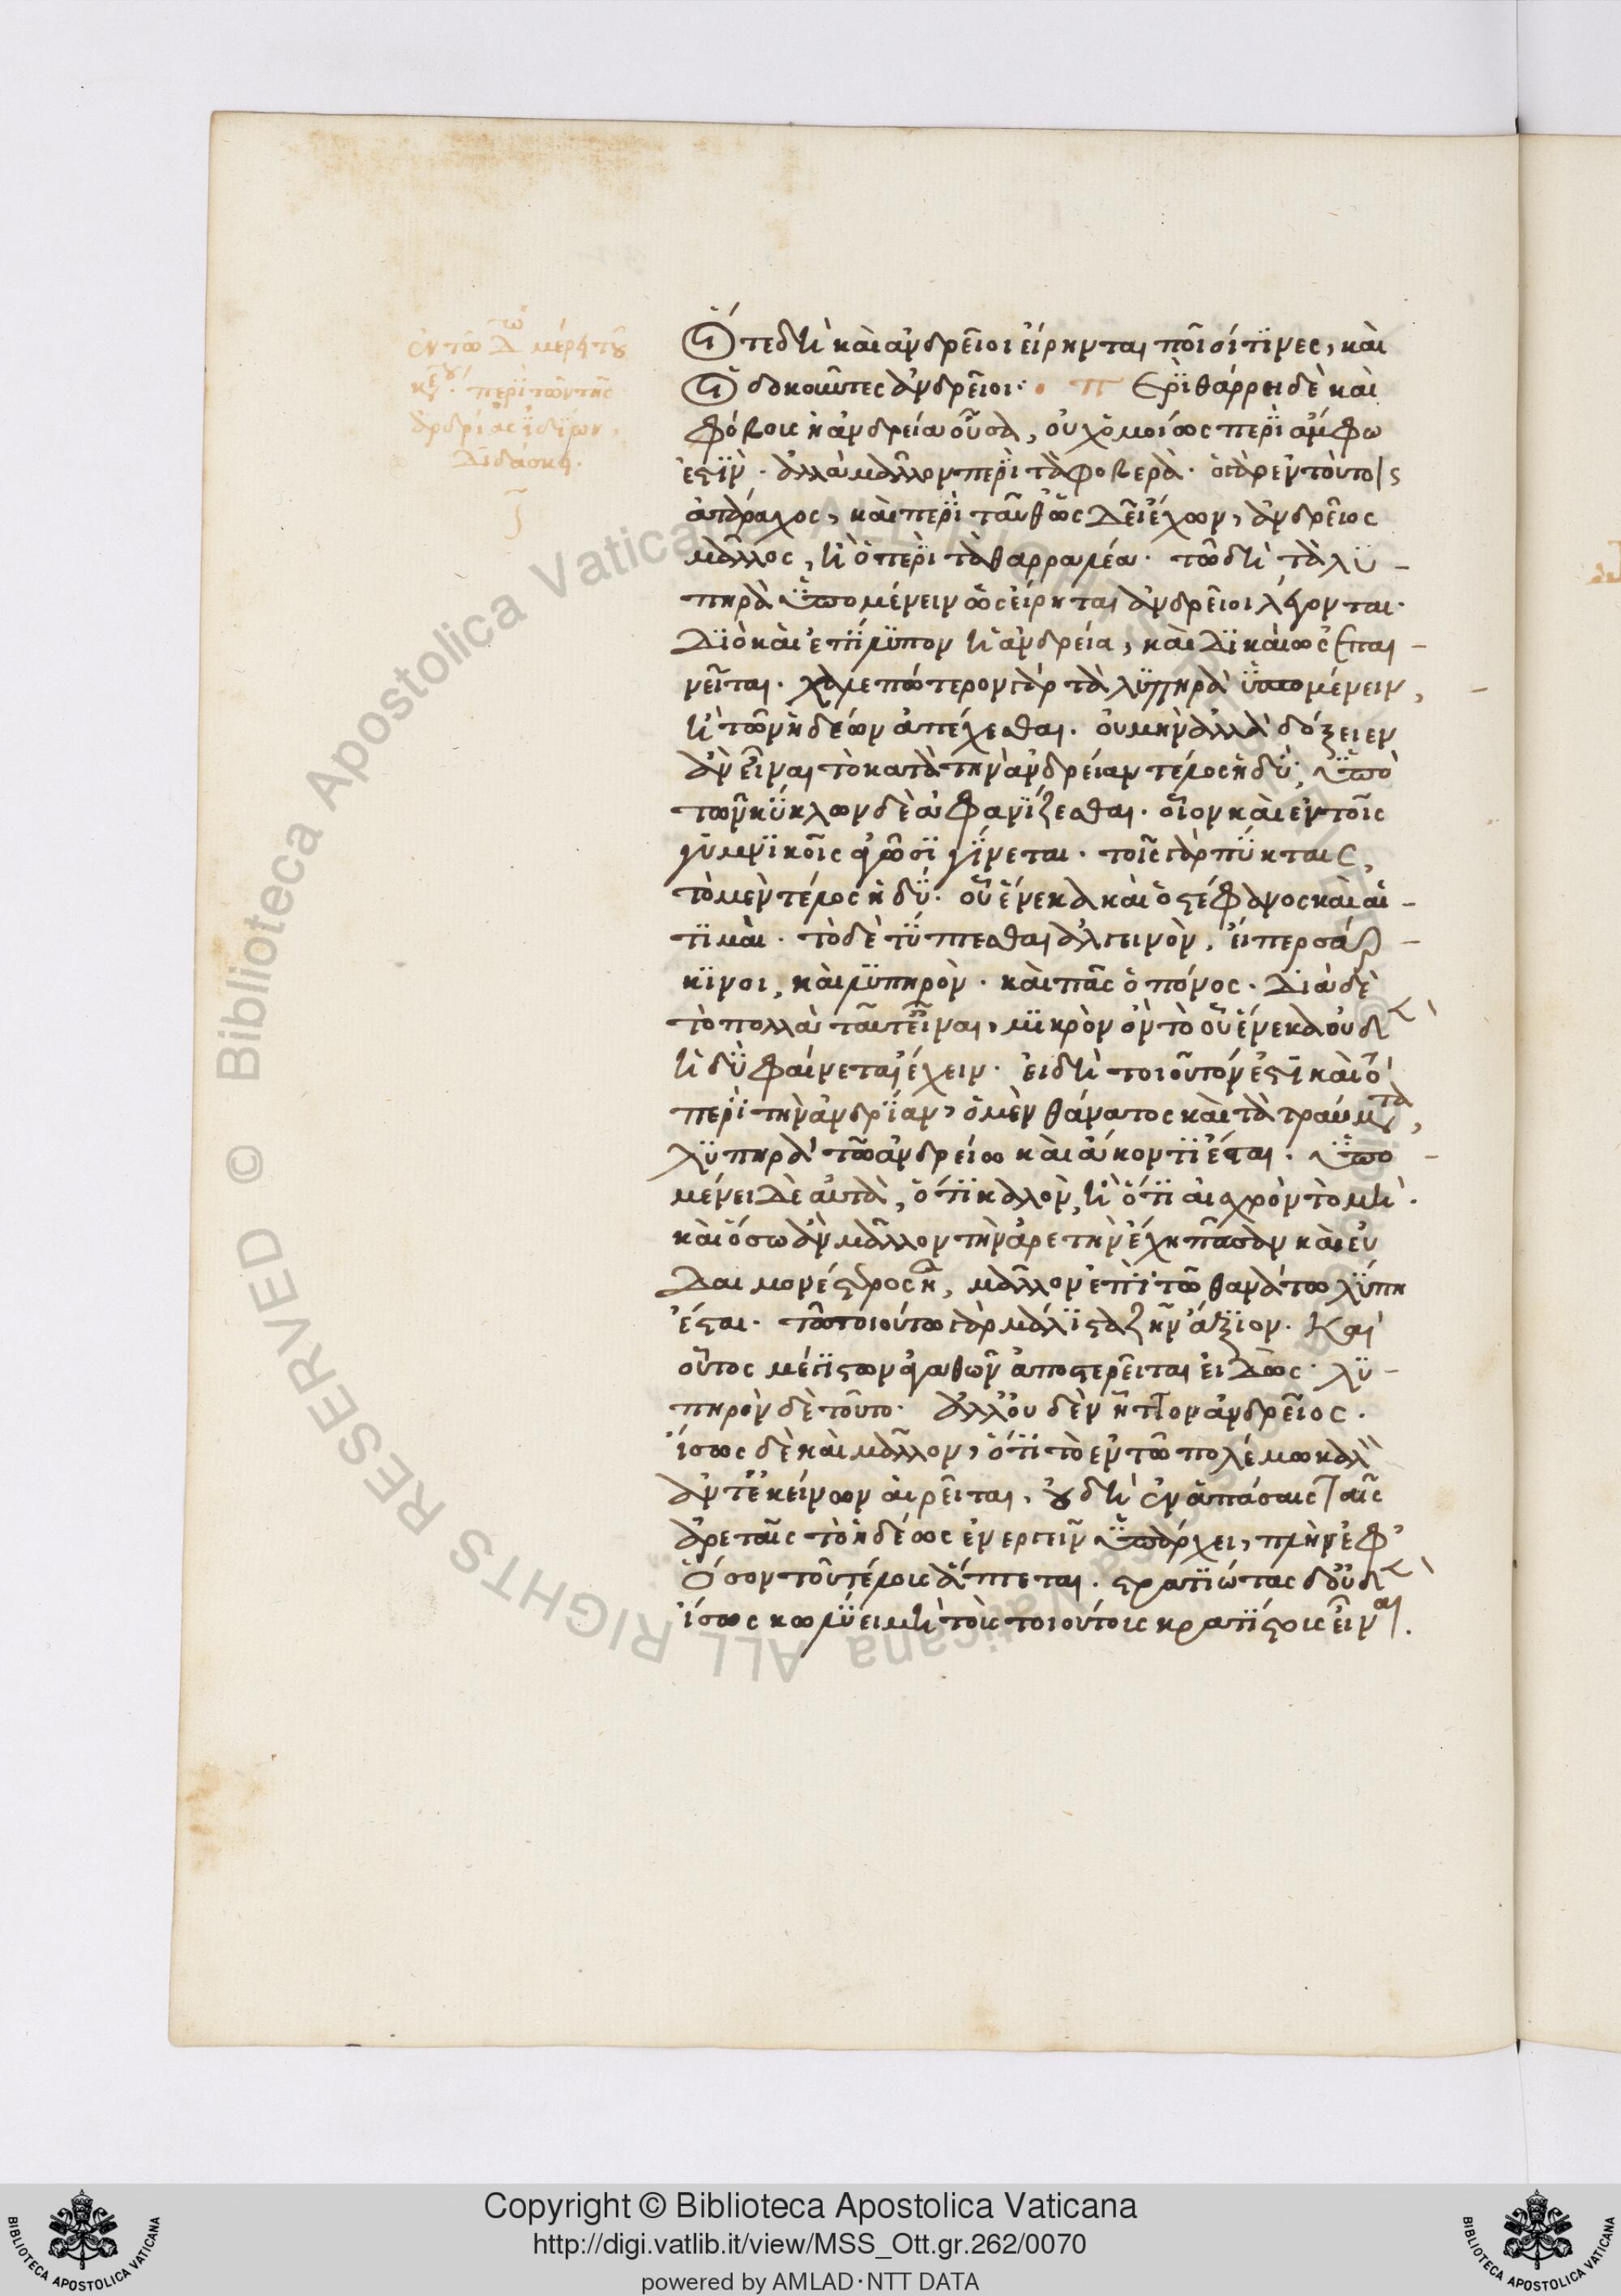 ἐν τῶ Δω μέρει τοῦ
κεου. περὶ τῶν τῆς
ἀνδρίας ἰδίων,
διδάσκει.
οἵ τε δὴ καὶ ἀνδρεῖοι εἴρηνται ποῖοί τινες, καὶ
οἱ δοκοῦντες ἀνδρεῖοι. Περὶ θάρρει δὲ καὶ
φόβοις ἡ ἀνδρεία οὖσα, οὐχ ὁμοίως περὶ ἄμφω
ἐστὶν. ἀλλὰ μᾶλλον περὶ τὰ φοβερὰ. ὁ γὰρ ἐν τούτοις
ἀτάραχος, καὶ περὶ ταῦθ᾽ ὡς δεῖ ἔχων, ἀνδρεῖος
μᾶλλος, ἢ ὁ περὶ τὰ θαρραλέα. τῶ δὴ τὰ λυ-
πηρὰ ὑπομένειν ὡς εἴρηται ἀνδρεῖοι λέγονται.
Διὸ καὶ ἐπίλυπον ἡ ἀνδρεία, καὶ δικαίως ἐπαι-
νεῖται. χαλεπώτερον γὰρ τὰ λυπηρὰ ὑπομένειν,
ἢ τῶν ἡδέων ἀπέχεσθαι. οὐ μὴν ἀλλὰ δόξειεν
ἂν εἶναι τὸ κατὰ τὴν ἀνδρείαν τέλος ἡδύ, ὑπὸ
τῶν κύκλων δὲ ἀφανίζεσθαι. οἷον καὶ ἐν τοῖς
γυμνικοῖς ἀγῶσι γίνεται. τοῖς γὰρ πύκταις,
τὸ μὲν τέλος ἡδύ. οὗ ἕνεκα καὶ ὁ στέφανος καὶ αἱ
τιμαὶ. τὸ δὲ τύπτεσθαι ἀλγεινὸν, εἴπερ σάρ-
κινοι, καὶ λυπηρὸν. καὶ πᾶς ὁ πόνος. Διὰ δὲ
τὸ πολλὰ ταῦτ᾽ εἶναι, μικρὸν ὂν τὸ οὗ ἕνεκα οὐδὲν
ἡδὺ φαίνεται ἔχειν. εἰ δὴ τοιοῦτόν ἐστι καὶ ὁ
περὶ τὴν ἀνδρίαν, ὁ μὲν θάνατος καὶ τὰ τραύματα,
λυπηρὰ τῶ ἀνδρείω καὶ ἄκοντι ἔσται. ὑπο-
μένει δὲ αὐτὰ, ὅτι καλὸν, ἢ ὅτι αἰσχρὸν τὸ μὴ.
καὶ ὅσω ἂν μᾶλλον τὴν ἀρετὴν ἔχη πᾶσαν καὶ εὐ
δαιμονέστερος ᾖ, μᾶλλον ἐπὶ τῶ θανάτω λύπη
ἔσται. τῶ τοιούτω γὰρ μάλιστα ζῆν ἄξιον. Καὶ
οὗτος μεγίστων ἀγαθῶν ἀποστερεῖται εἰδὼς. λυ-
πηρὸν δὲ τοῦτο. ἀλλ᾽ οὐδὲν ἧττον ἀνδρεῖος.
ἴσως δὲ καὶ μᾶλλον, ὅτι τὸ ἐν τῶ πολέμω καλὸν
ἀντ᾽ ἐκείνων αἱρεῖται, οὐ δὴ ἐν ἁπάσαις ταῖς
ἀρεταῖς τὸ ἡδέως ἐνεργεῖν ὑπάρχει, πλὴν ἐφ᾽
ὅσον τοῦ τέλους ἅπτεται. στρατιώτας δ᾽ οὐδὲν
ἴσως κωλύει μὴ τοὺς τοιούτους κρατίστους εἶναι.
Biblioteca Apostolica Vaticana ALL RIGHTS RESERVED ©
Copyright © Biblioteca Apostolica Vaticana
http://digi.vatlib.it/view/MSS_Ott.gr.262/0070
powered by AMLAD·NTT DATA
BIBLIOTECA APOSTOLICA VATICANA
BIBLIOTECA APOSTOLICA VATICANA